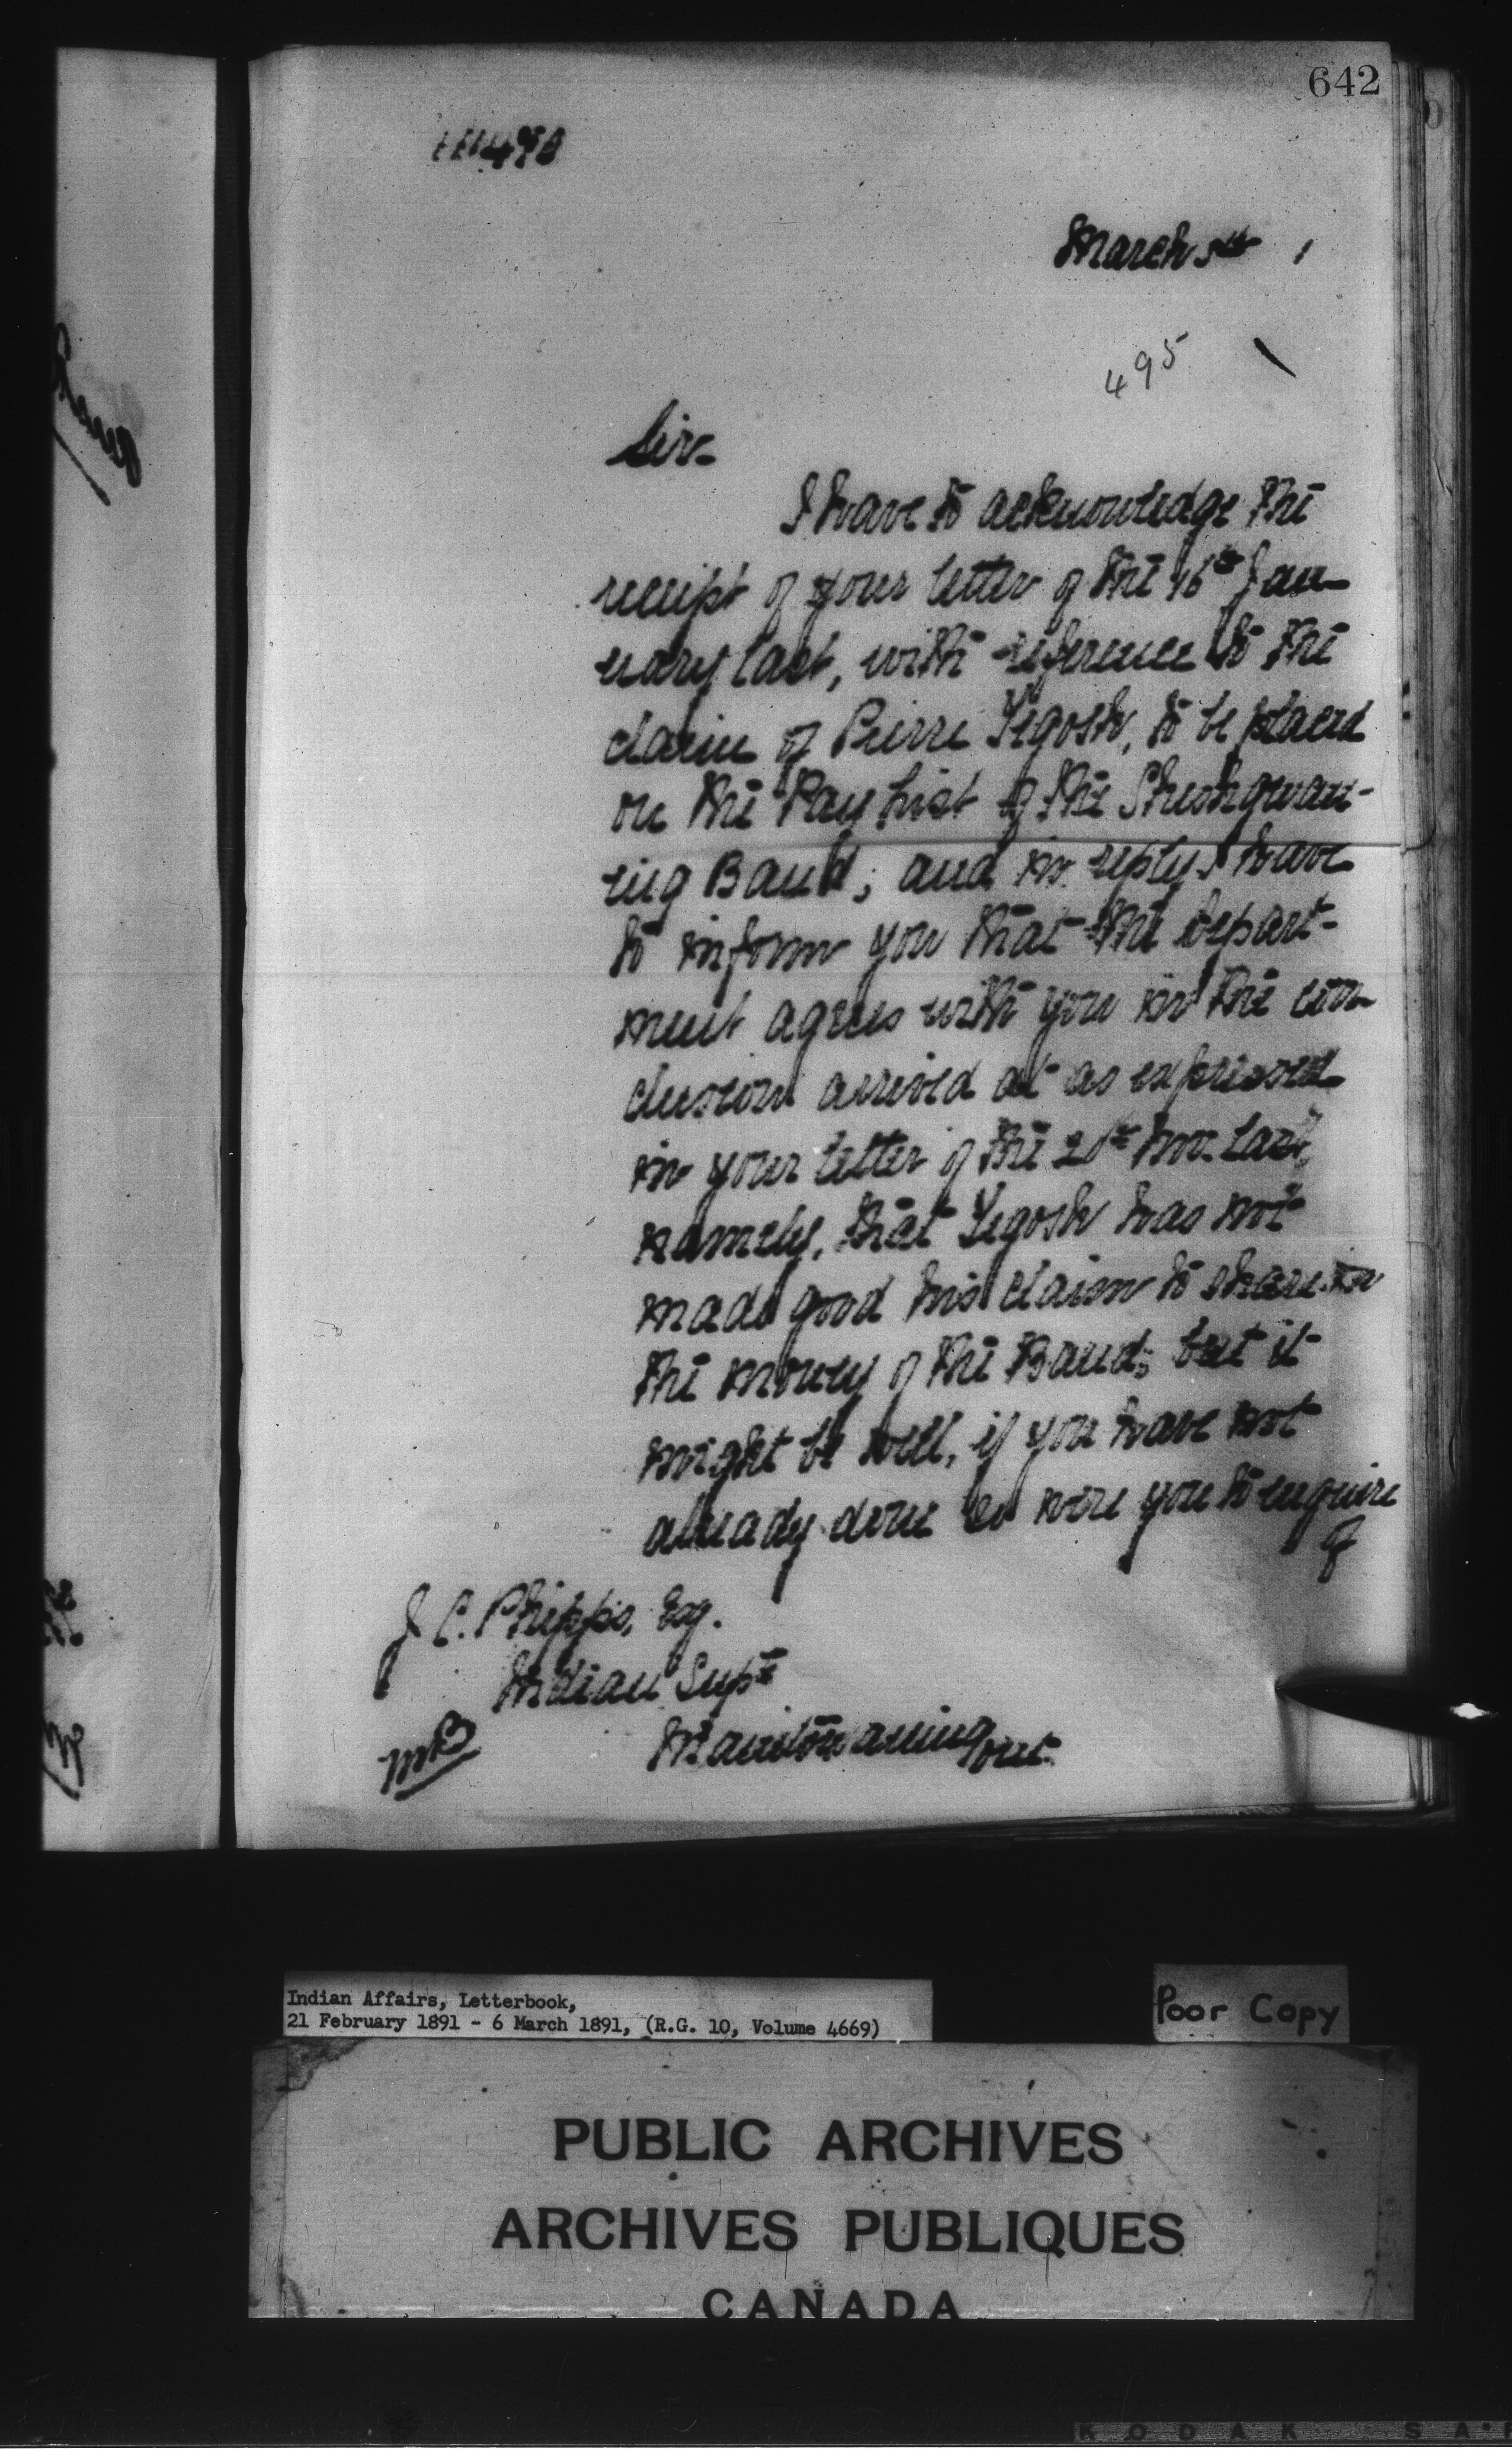 642
March 5th 1
495
Sir.
I have to acknowledge the
receipt of your letter of the 16th Jan-
uary last, with reference to the
claim of Pierre Legosh, to be placed
on the Pay List of the Sheshegwan-
ing Band; and in reply I have
to inform you that the Depart-
ment agrees with you in the con-
clusion arrived at as expressed
in your letter of the Nov. last,
namely, that Legosh has not
made good his claim to share in
the money of the Band; but it
might be well, if you have not
already done so were you to enquire
of
J. C. Phipps, Esq.
Indian Supt
Manitowaning Ont.
Indian Affairs, Letterbook,
21 February 1891 - 6 March 1891, (R.G. 10, Volume 4669)
Poor Copy
PUBLIC ARCHIVES
ARCHIVES PUBLIQUES
CANADA
KODAK SA